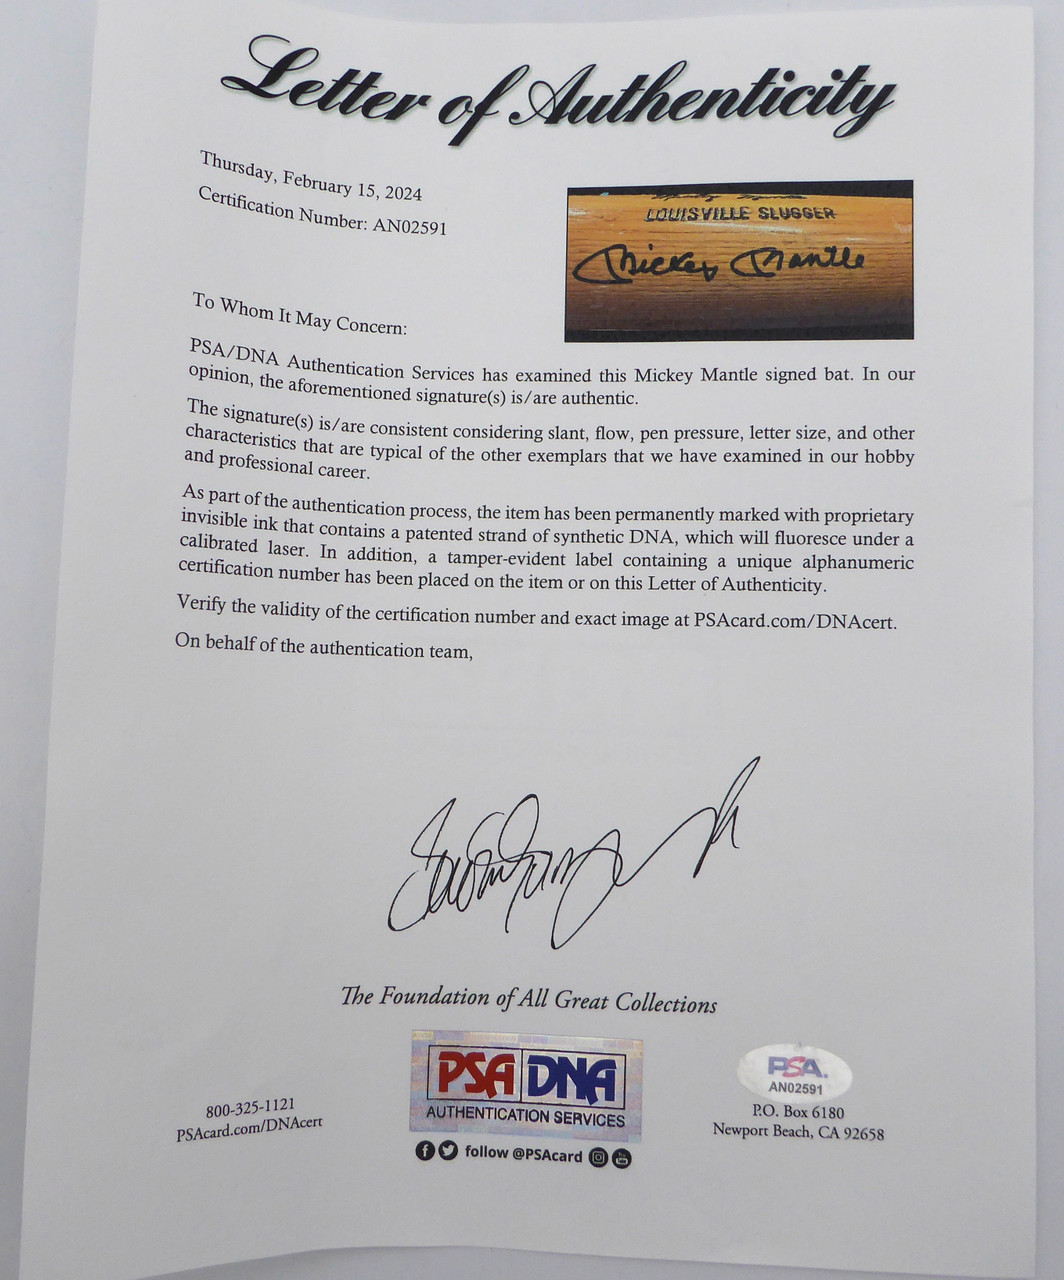 Letter of Authenticity
Thursday, February 15, 2024
Certification Number: AN02591
LOUISVILLE SLUGGER
Mickey Mantle
To Whom It May Concern:
PSA/DNA Authentication Services has examined this Mickey Mantle signed bat. In our
opinion, the aforementioned signature(s) is/are authentic.
The signature(s) is/are consistent considering slant, flow, pen pressure, letter size, and other
characteristics that are typical of the other exemplars that we have examined in our hobby
and professional career.
As part of the authentication process, the item has been permanently marked with proprietary
invisible ink that contains a patented strand of synthetic DNA, which will fluoresce under a
calibrated laser. In addition, a tamper-evident label containing a unique alphanumeric
certification number has been placed on the item or on this Letter of Authenticity.
Verify the validity of the certification number and exact image at PSAcard.com/DNAcert.
On behalf of the authentication team,
The Foundation of All Great Collections
800-325-1121
PSAcard.com/DNAcert
PSA DNA
AUTHENTICATION SERVICES
follow @PSAcard
PSA.
AN02591
P.O. Box 6180
Newport Beach, CA 92658